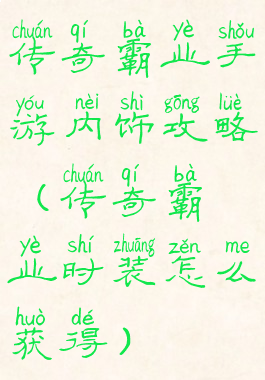 chuán qí bà yè shǒu
传奇霸业手
yóu nèi shì gōng lüè
游内饰攻略
chuán qí bà
（传奇霸
yè shí zhuāng zěn me
业时装怎么
huò dé
获得）